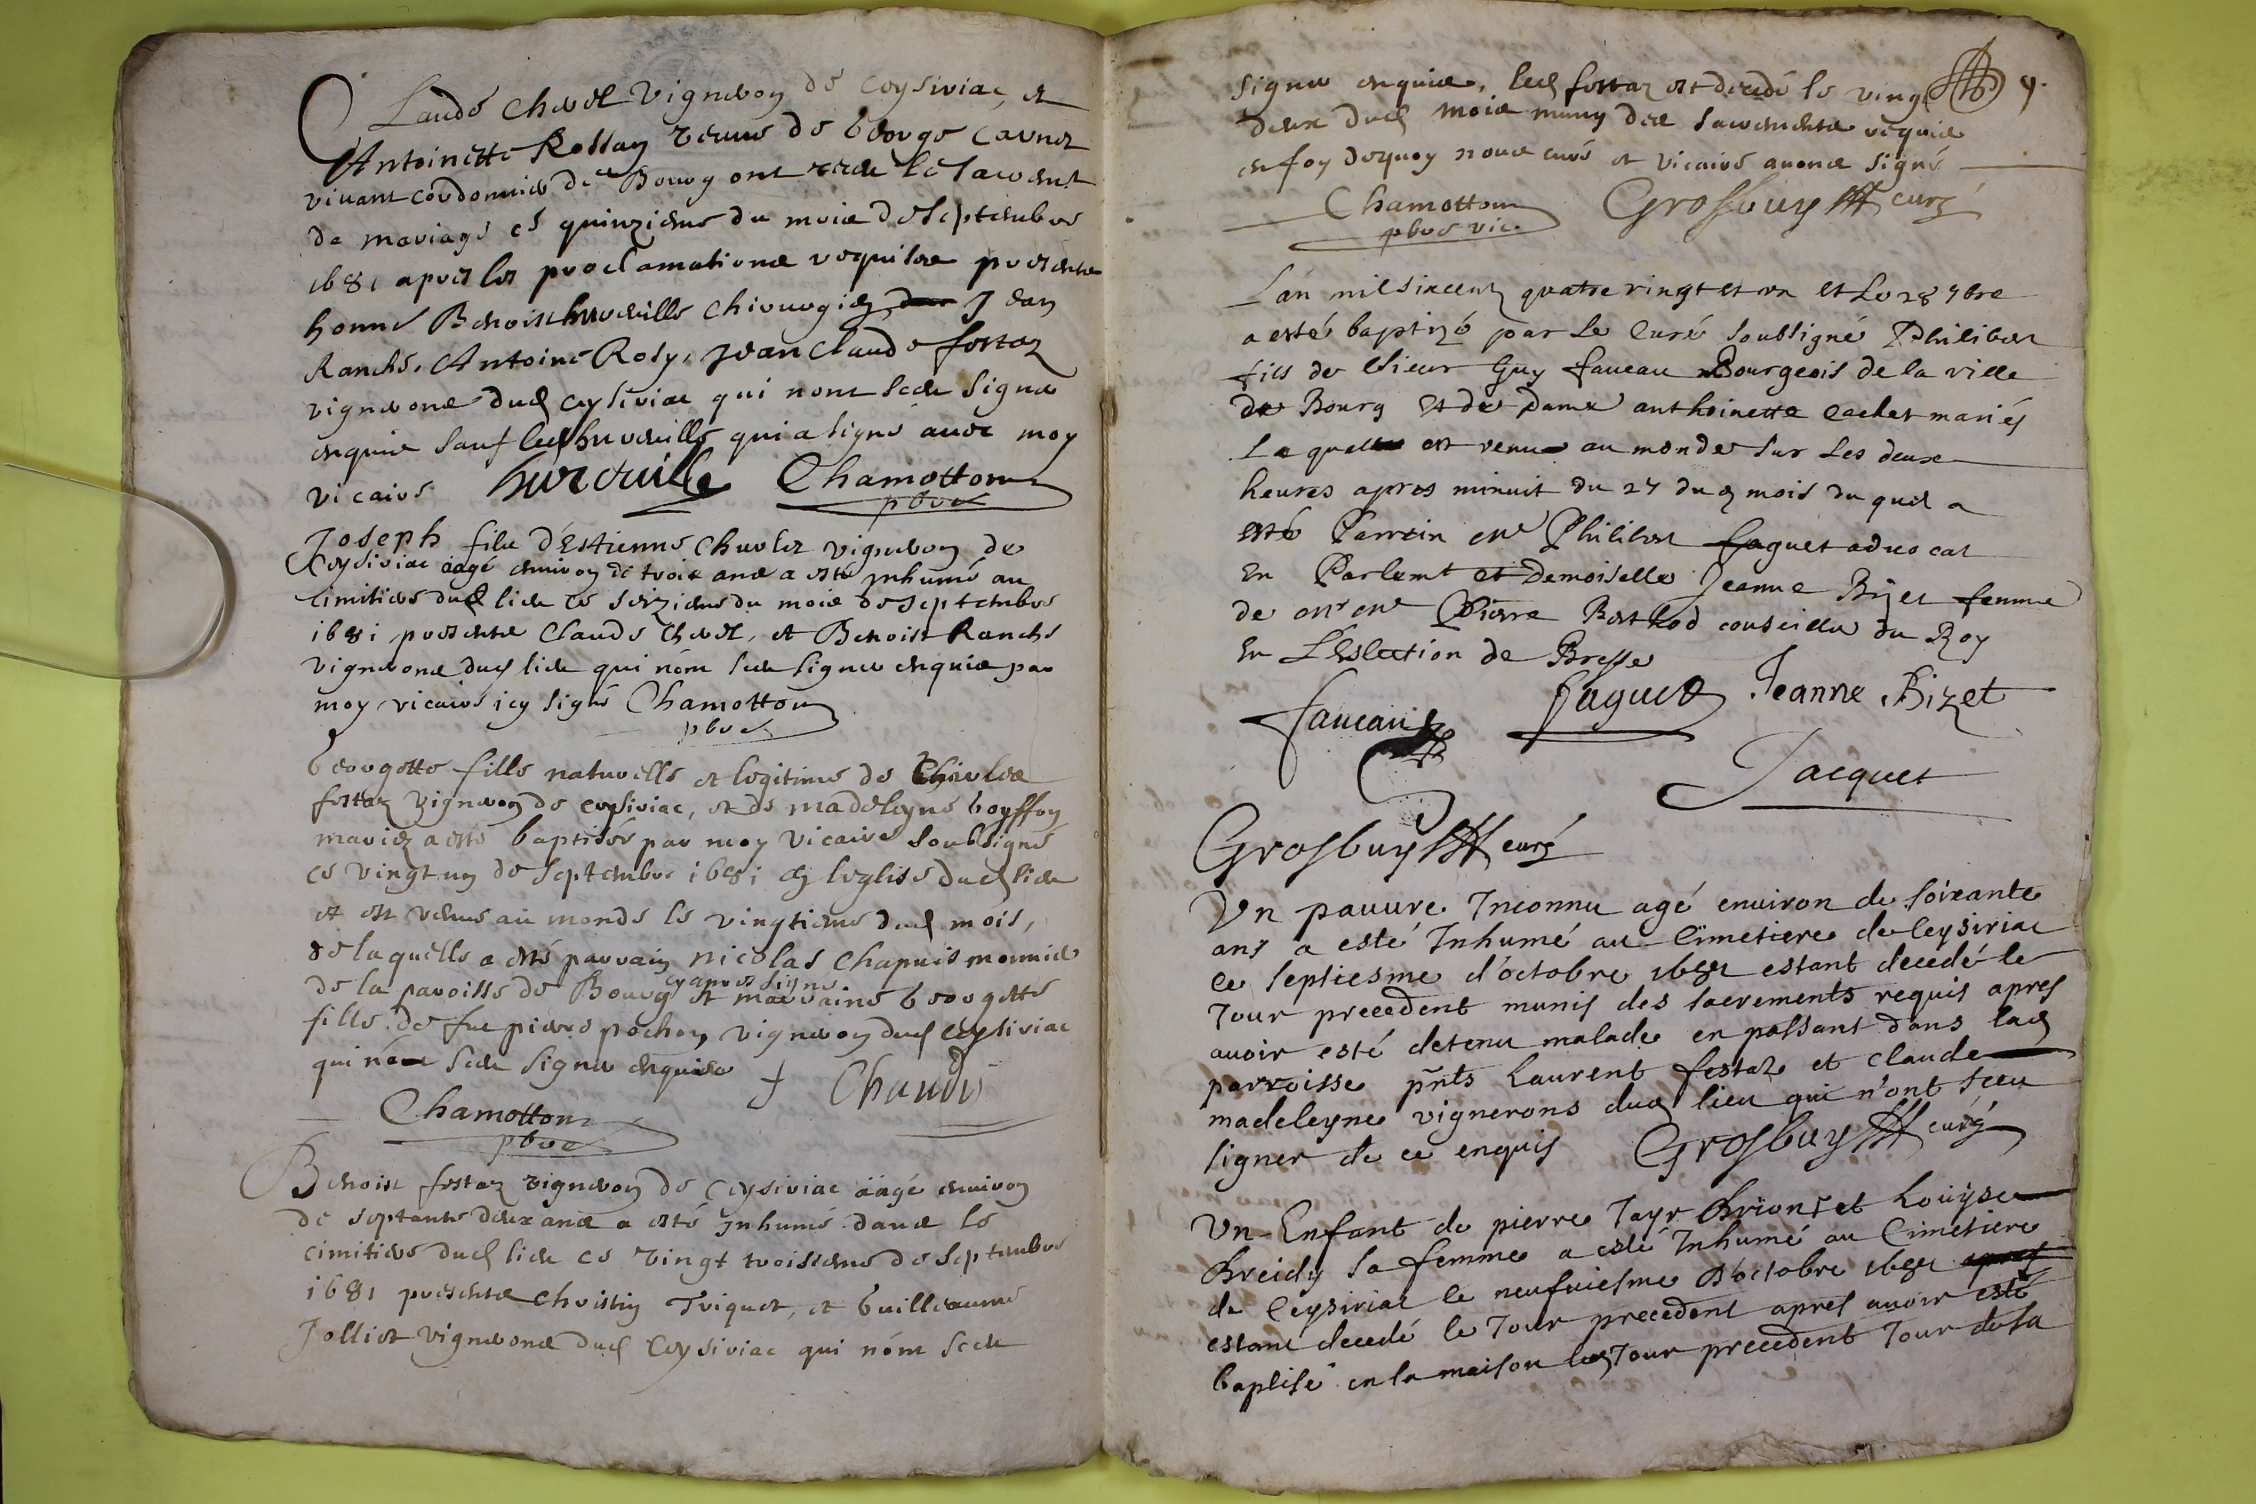 Claude Chevel vigneron de Ceysiriac, et
Antoinette Rollan veuve de George
vivant cordonnier de Bourg ont receu le sacrement
de mariage ce quinzieme du mois de Septembre
1681 apres les proclamations requises presents
honné Benoist hurteville Chirourgien Jean
Ranche, Antoine Rosy, Jean Claude festaz
vignerons dud Ceysiriac qui nont sceu signer
enquis sauf led hurteville qui a signé avec moy
vicaire hurteuille Chamotton
pbre
Joseph fils d'Estienne Chuolez vigneron de
Ceysiriac aagé environ de trois ans a esté inhumé au
cimitiere dud lieu ce seizieme du mois de Septembre
1681 presents Claude Chevel, et Benoist Ranche
vignerons dud lieu qui nont sceu signer enquis par
moy vicaire icy signé Chamotton
pbre
Georgette fille naturelle et legitime de
festaz vigneron de Ceysiriac, et de Madeleyne goyffon
mariez a esté baptisée par moy vicaire soubsigné
ce vingt un de Septembre 1681 en leglise dud lieu
et est venue au monde le vingtieme dud mois,
de laquelle a esté parrain nicolas Chapuis monnier
cy apres signé
de la paroisse de Bourg et marraine georgette
fille de fut pierre pochon vigneron dud Ceysiriac
qui non sceu signer enquise + Chaudy
Chamotton
pbre
Benoist festaz vigneron de Ceysiriac aagé environ
de septante deux ans a esté inhumé dans le
cimitiere dud lieu ce vingt troisieme de Septembre
1681 presents Christin Triquet, et Guilleaume
Jolliet vignerons dud Ceysiriac qui nont sceu
signer enquis, led festaz est decedé le vingt 9.
deux dud mois muny des sacrements requis
en foy dequoy nous curé et vicaire avons signé
Chamotton Grosbuy curé
pbre vic.
Lan mil six cent quatre vingt et un et Le 28 7bre
a esté baptizé par Le Curé soubsigné Philibert
fils de Sieur Guy faveau Bourgeois de la ville
de Bourg et de Dame anthoinette Cachet mariés
Le quel est venu au monde sur Les deux
heures apres minuit du 27 dud mois du quel a
esté Parrein mre Philibert faguet advocat
en Parlemt et Demoiselle Jeanne Bizet femme
de mr me Pierre Berthod conseiller du Roy
en L'Eslection de Bresse
faueau faguet Jeanne Bizet
Jacquet
Grosbuy curé
Un pauure Inconnu agé enuiron de soixante
ans a esté Inhumé au Cimetiere de Ceysiriac
ce septiesme d'octobre 1681 estant decedé le
Jour precedent munis des sacrements requis apres
auoir esté detenu malade en passant dans lad
parroisse pnts Laurent festaz et Claude
madeleyne vignerons dud lieu qui n'ont sceu
signer de ce enquis Grosbuy curé
Un Enfant de pierre Tayr Brion et Louyse
Breidy sa femme a esté Inhumé au Cimetiere
de Ceysiriac le neufuiesme d'octobre 1681 apres
estant decedé le Jour precedent apres auoir esté
baptisé en la maison led Jour precedent Jour de sa